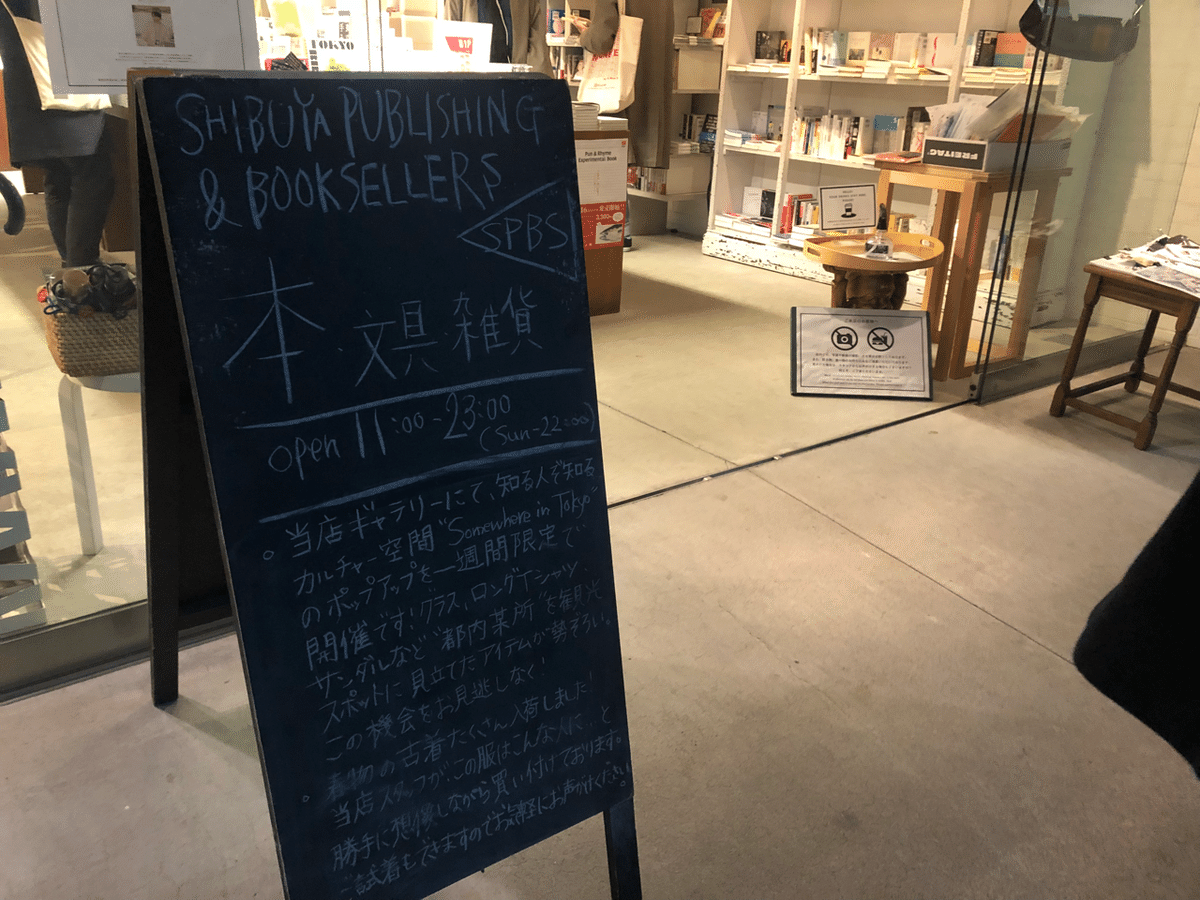 SHIBUYA PUBLISHING
& BOOKSELLERS
SPBS
本・文具・雑貨
open 11:00-23:00
(Sun-22:00)
。当店ギャラリーにて、知る人ぞ知る
カルチャー空間“Somewhere in Tokyo”
のポップアップを一週間限定で
開催です!グラス、ロングTシャツ、
サンダルなど“都内某所”を観光
スポットに見立てたアイテムが勢ぞろい。
この機会をお見逃しなく!
。春物の古着たくさん入荷しました!
当店スタッフが、この服はこんな人に…と
勝手に想像しながら買い付けております。
ご試着もできますのでお気軽にお声がけください。
TOKYO
Pun & Rhyme
Experimental Book
FREITAG